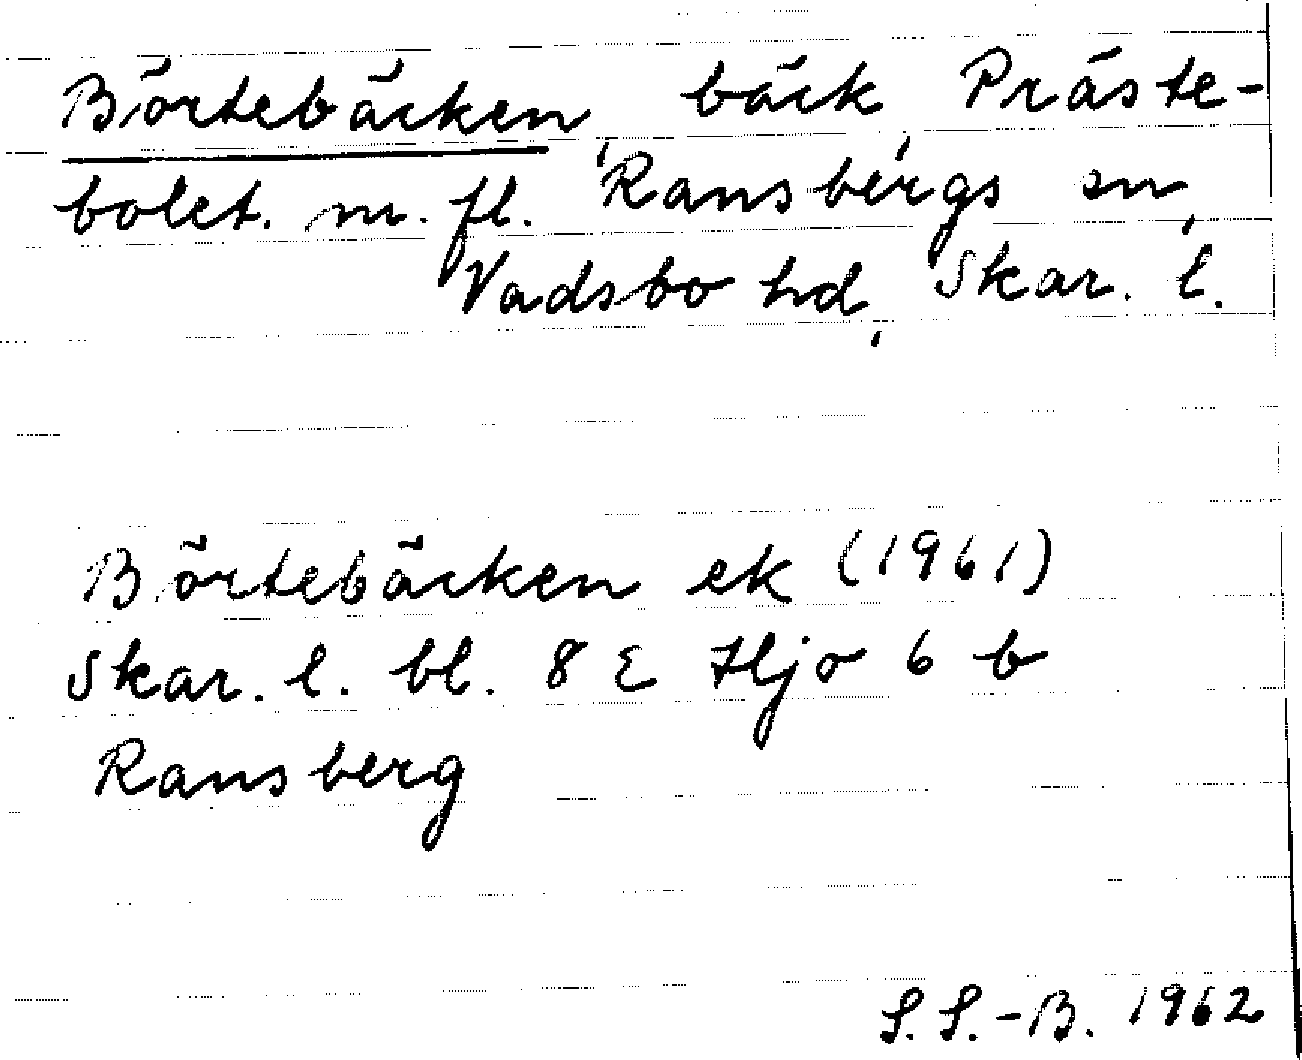 Börtebäcken, bäck, Präste-
bolet. m. fl. Ransbergs sn,
Vadsbo hd, Skar. l.
Börtebäcken ek (1961)
Skar. l. bl. 8 E Hjo 6 b
Ransberg
S. S.-B. 1962